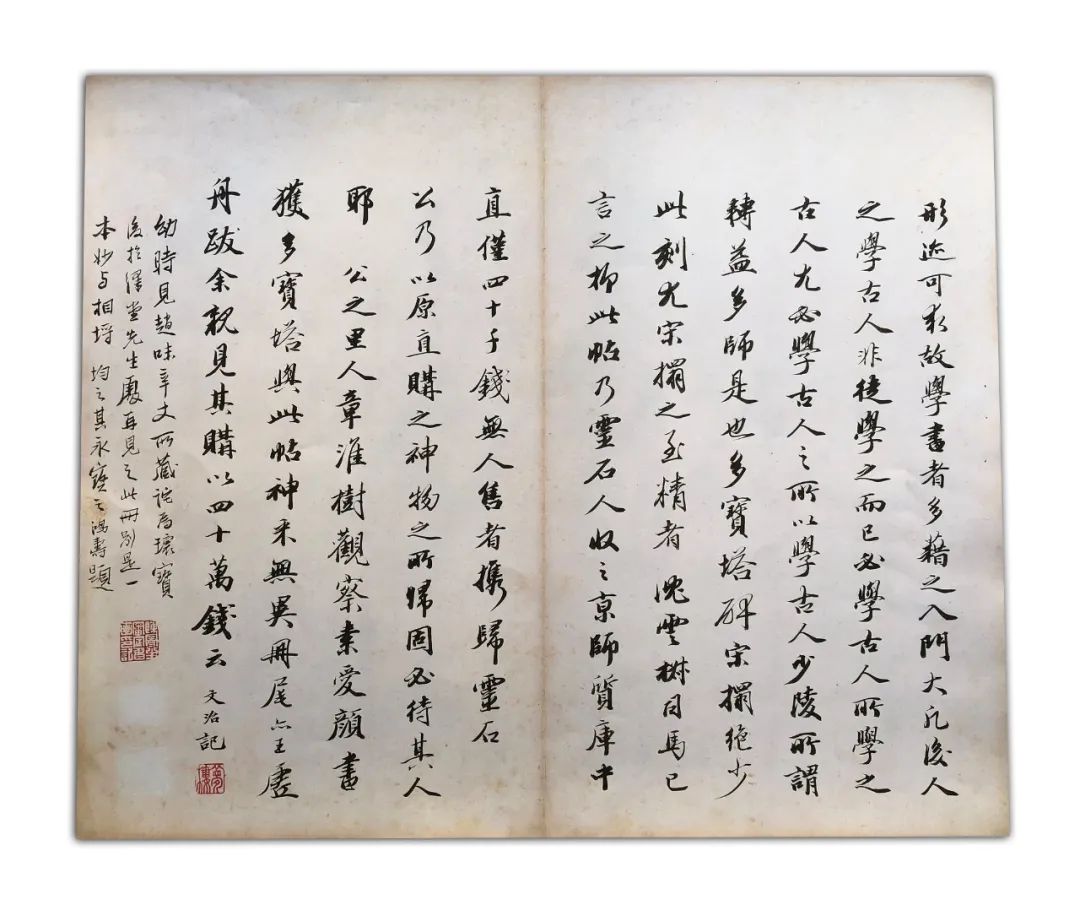 形迹可求故學書者多藉之入門大凡後人
之學古人非徒學之而已必學古人所學之
古人尤必學古人之所以學古人少陵所謂
轉益多師是也多寶塔碑宋搨絶少
此刻尤宋搨之至精者 沈雲椒司馬已
言之柳此帖乃靈石人收之京師質庫中
直僅四十千錢無人售者攜歸靈石
公乃以原直購之神物之所歸固必待其人
耶 公之里人章淮樹觀察素愛顏書
獲多寶塔與此帖神采無異冊尾亦王虛
舟跋余親見其購以四十萬錢云 文治記
幼時見趙味辛丈所藏詫為瓌寶
後於澤堂先生處再見之此冊別是一
本妙与相埒 均之其永寶之 鴻壽題